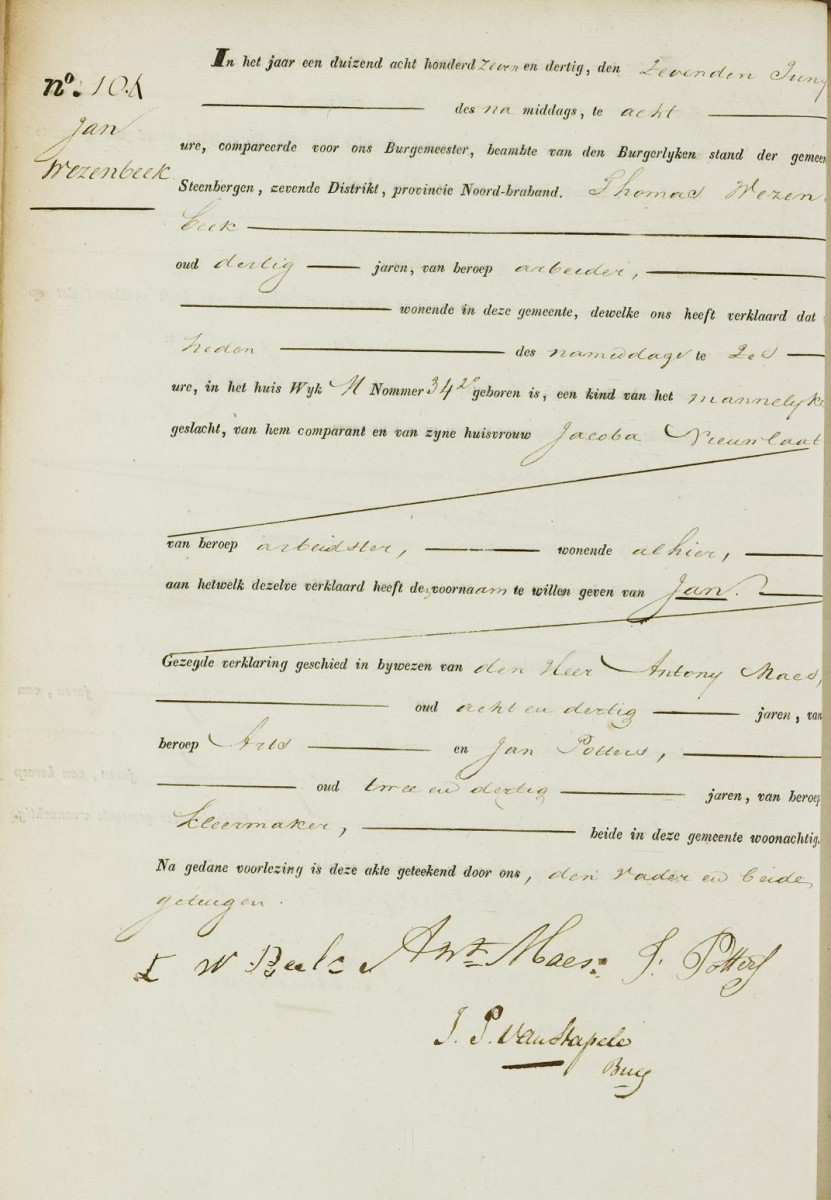 In het jaar een duizend acht honderd zeven en dertig, den Zevenden Juny
des na middags, te acht
nº: 101
Jan
Wezenbeek
ure, compareerde voor ons Burgemeester, beambte van den Burgerlyken stand der gemeen
Steenbergen, zevende Distrikt, provincie Noord-braband. Thomas Wezen
beek
oud dertig jaren, van beroep arbeider,
wonende in deze gemeente, dewelke ons heeft verklaard dat
heden des namiddags te Zes
ure, in het huis Wyk M Nommer 342 geboren is, een kind van het mannelyke
geslacht, van hem comparant en van zyne huisvrouw Jacoba Nieuwlaat
van beroep arbeidster, wonende alhier,
aan hetwelk dezelve verklaard heeft de voornaam te willen geven van Jan.
Gezegde verklaring geschied in bywezen van den Heer Antony Maes,
oud acht en dertig jaren, van
beroep Arts en Jan Potters,
oud twee en dertig jaren, van beroep
kleermaker, beide in deze gemeente woonachtig.
Na gedane voorlezing is deze akte geteekend door ons, den vader en beide
getuigen.
W Beek Ant Maes J: Potters
J. P. van Stapele
Burg